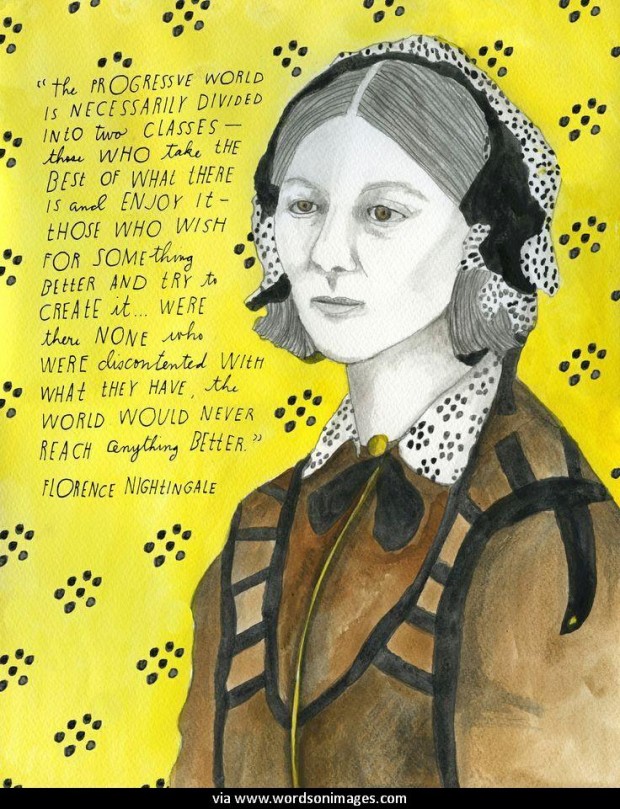 "the PROGRESSVE WORLD
IS NECESSARILY DIVIDED
INTO two CLASSES —
those WHO take tHE
BEST OF WHAt tHERE
IS and ENJOY It -
tHOSE WHO WISH
FOR SOMEthing
BEttER AND tRY to
CREAtE it... WERE
there NONE who
WERE discontented WItH
WHAt tHEY HAVE, the
WORLD WOULD NEVER
REACH anything BEttER."
FLORENCE NIGHtINGALE
via www.wordsonimages.com